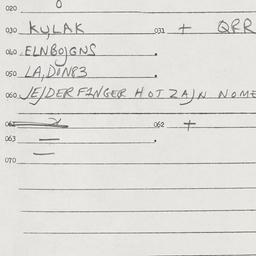 020 0
030 KYLAK 031 + QRR
040 ELNBOJGNS .
050 LA,DON83 .
060 JEJDERFINGER HOT ZAJN NOME
061 062 +
063 — .
—
070